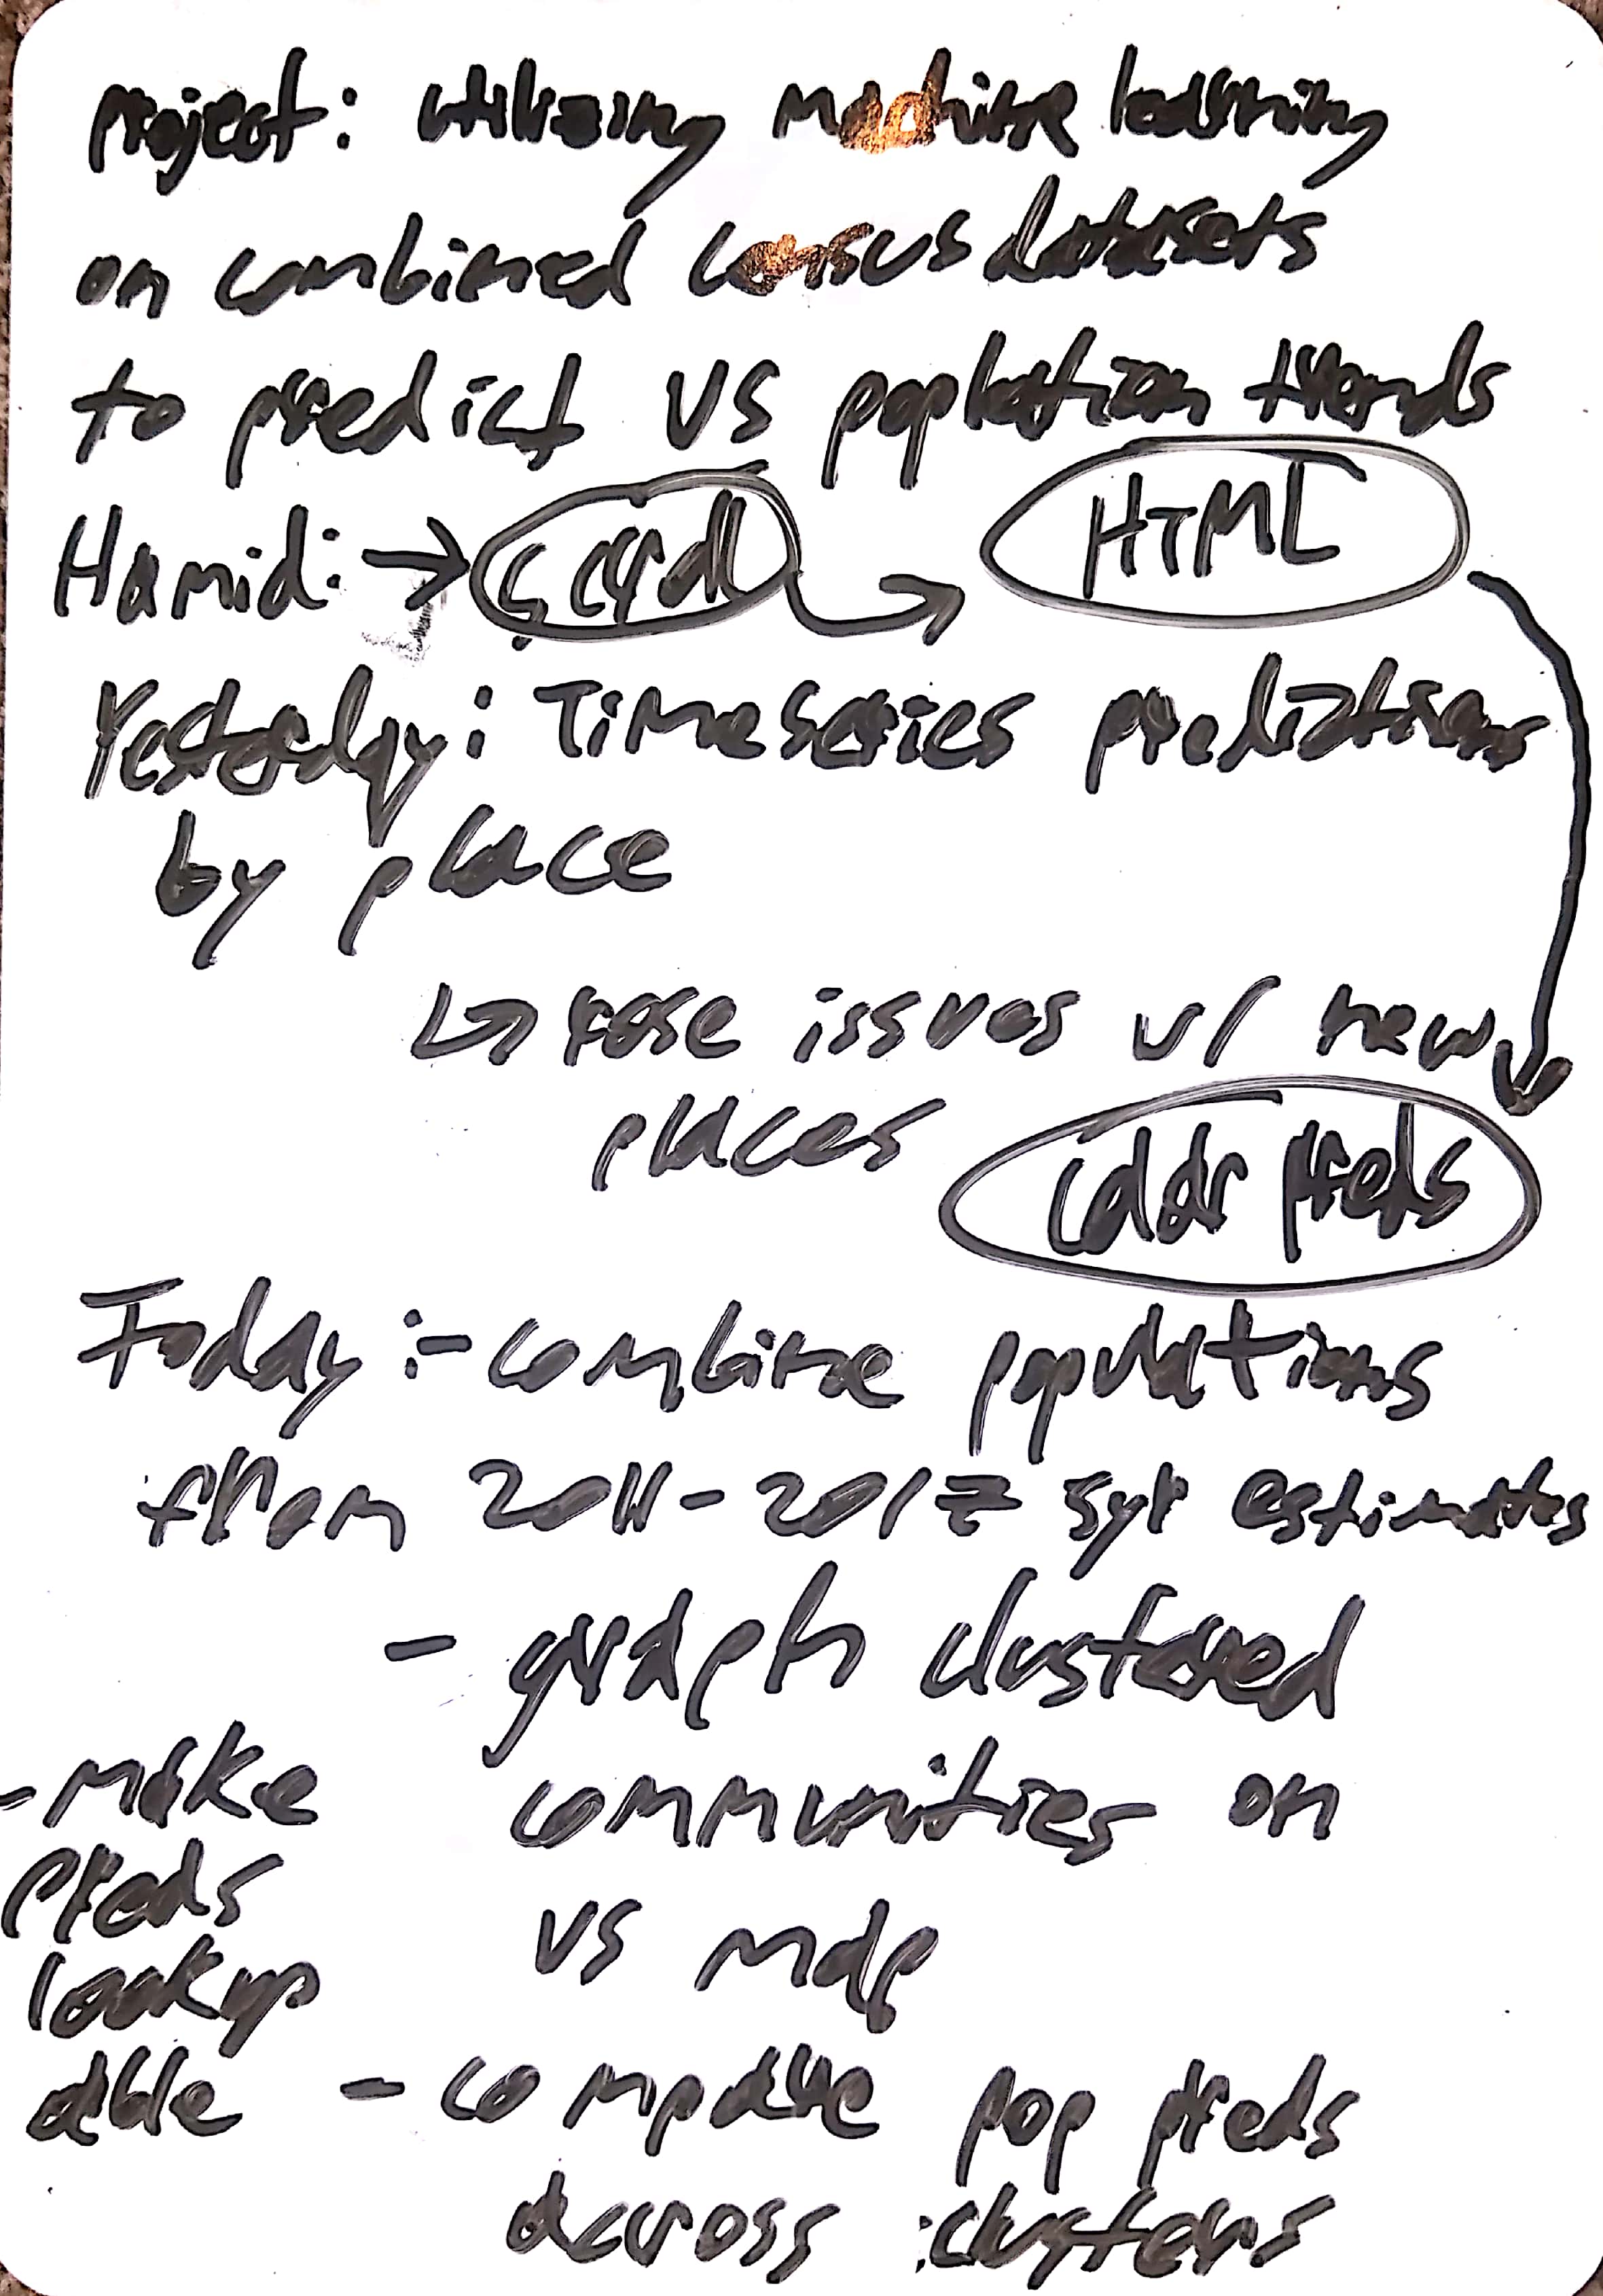 project: utilizing machine learning
on combined census datasets
to predict US poplation trends
Hamid: → → HTML
Yesterday: Timeseries predictions
by place
↳ rose issues w/ new
places
preds
Today: - combine populations
from 2011-2017 5yr estimates
- graph clustered
communities on
US map
- make
preds
lookup
able
- compare pop preds
across clusters